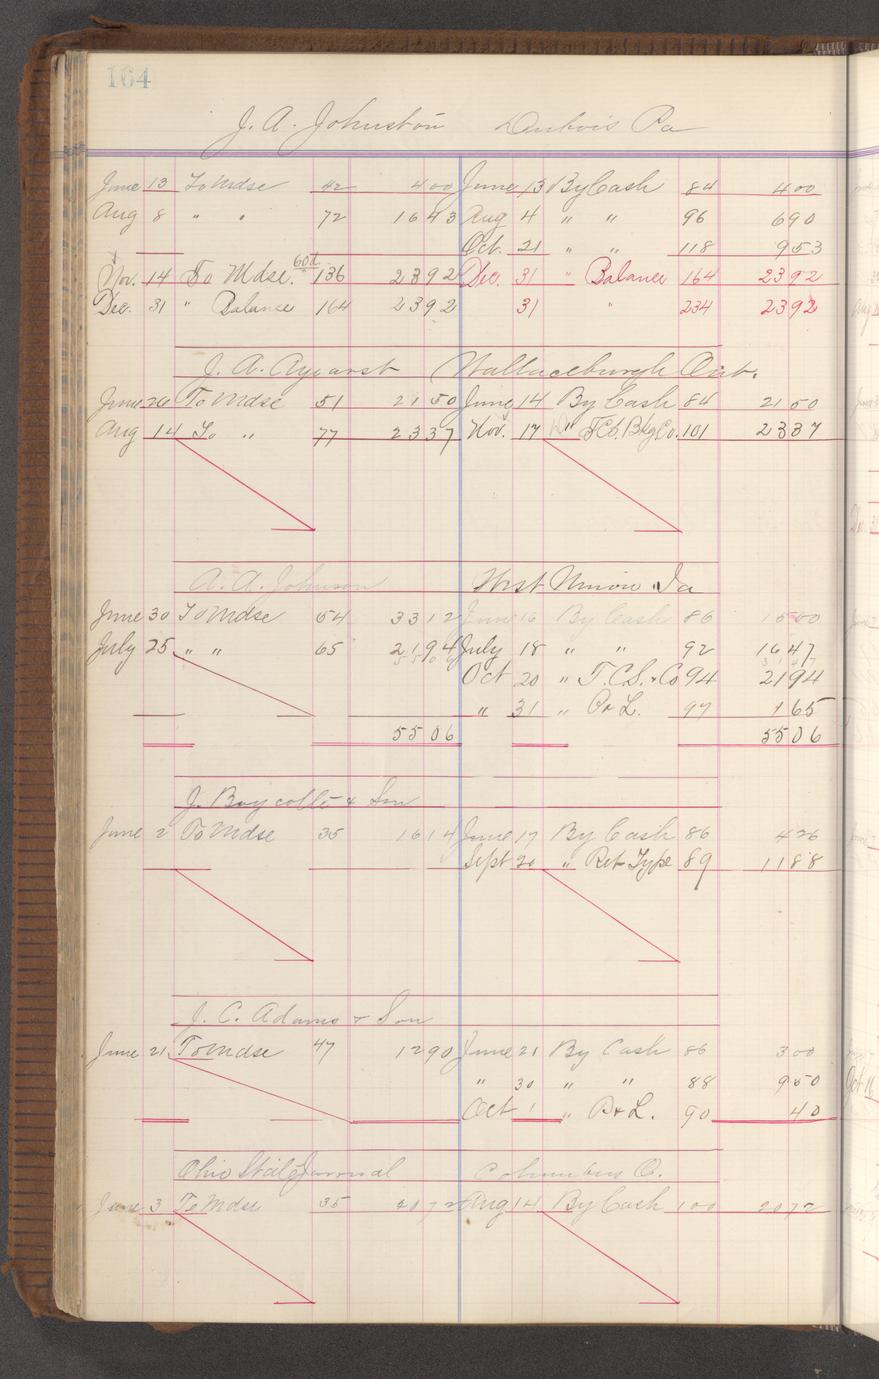 164
J. A. Johnston Dubois Pa
June 13 To Mdse 42 400 June 13 By Cash 84 400
Aug 8 " " 72 1643 Aug 4 " " 96 690
Oct. 21 " " 118 953
Nov. 14 To Mdse. 60d. 136 2392 Dec. 31 " Balance 164 2392
Dec. 31 " Balance 164 2392 31 " 234 2392
J. A. Ayearst Wallaceburgh Ont.
June 26 To Mdse 51 2150 June 14 By Cash 84 2150
Aug 14 To " 77 2337 Nov. 17 " 101 2337
A. A. Johnson West Union Ia
June 30 To Mdse 54 3312 June 16 By Cash 86 1500
July 25 " " 65 2194 July 18 " " 92 1647
Oct 20 " T.C.S. & Co 94 2194
" 31 " P & L. 97 165
5506 5506
J. Boycotte & Son
June 2 To Mdse 35 1614 June 17 By Cash 86 426
Sept 20 " Ret Type 89 1188
J. C. Adams & Son
June 21 To Mdse 47 1290 June 21 By Cash 86 300
" 30 " " 88 950
Oct 1 " P & L. 90 40
Ohio State Journal Columbus O.
June 3 To Mdse 35 2072 Aug 14 By Cash 100 2072